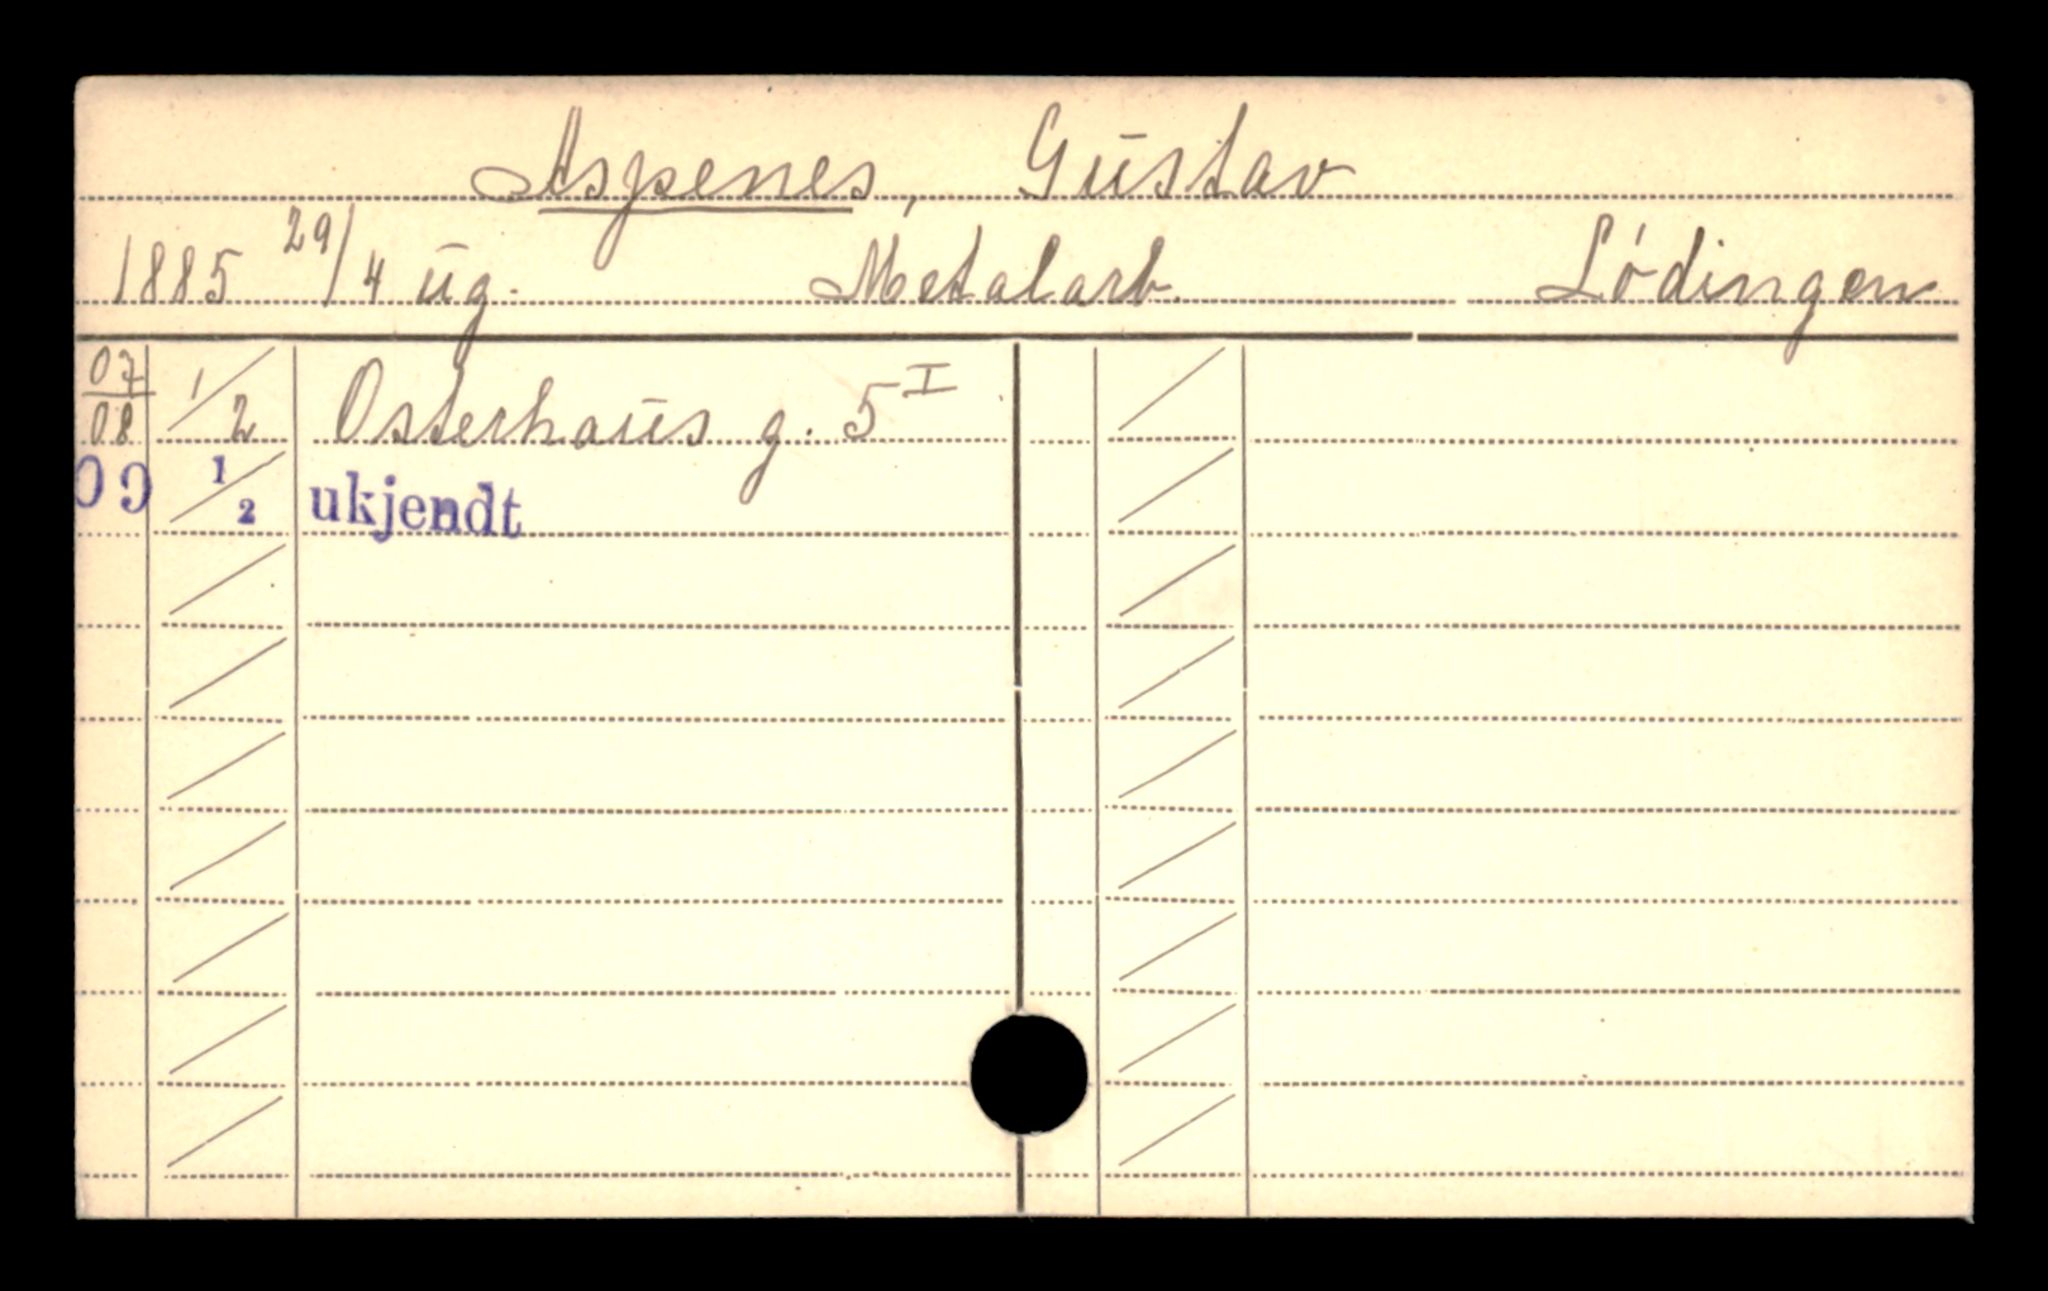 Aspenes, Gustav
1885 29/4 ug. Metalarb. Lödingen
07/08 1/2 Osterhaus g. 5 I
09 1/2 ukjendt